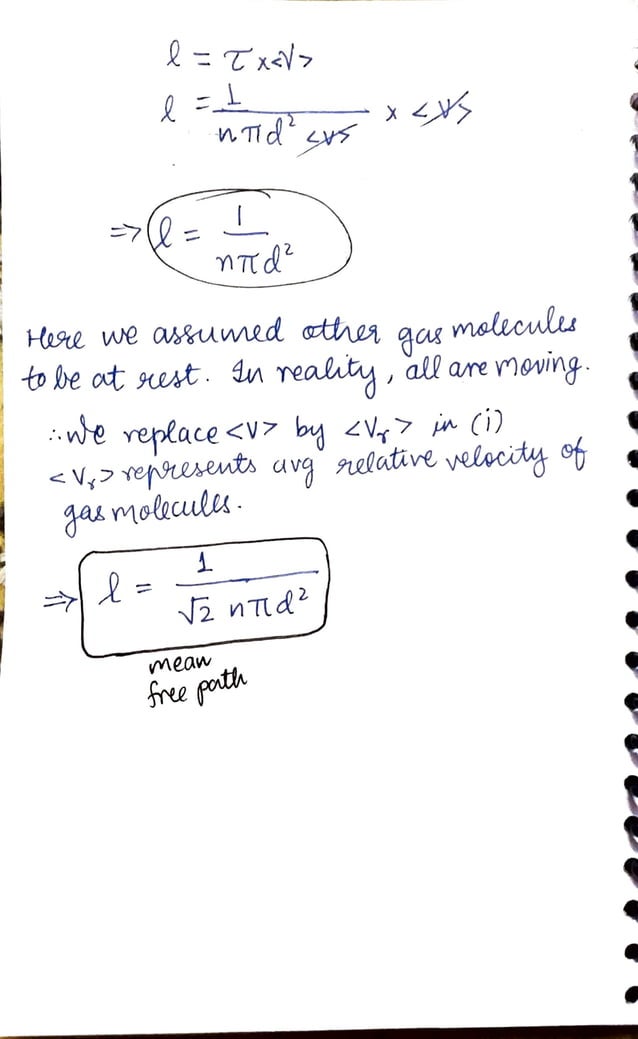 l = τ x <V>
l = 1 / nπd² <V> x <V>
⇒ l = 1 / nπd²
Here we assumed other gas molecules
to be at rest. In reality, all are moving.
∴ We replace <V> by <Vᵣ> in (i)
<Vᵣ> represents avg relative velocity of
gas molecules.
⇒ l = 1 / √2 nπd²
mean
free path